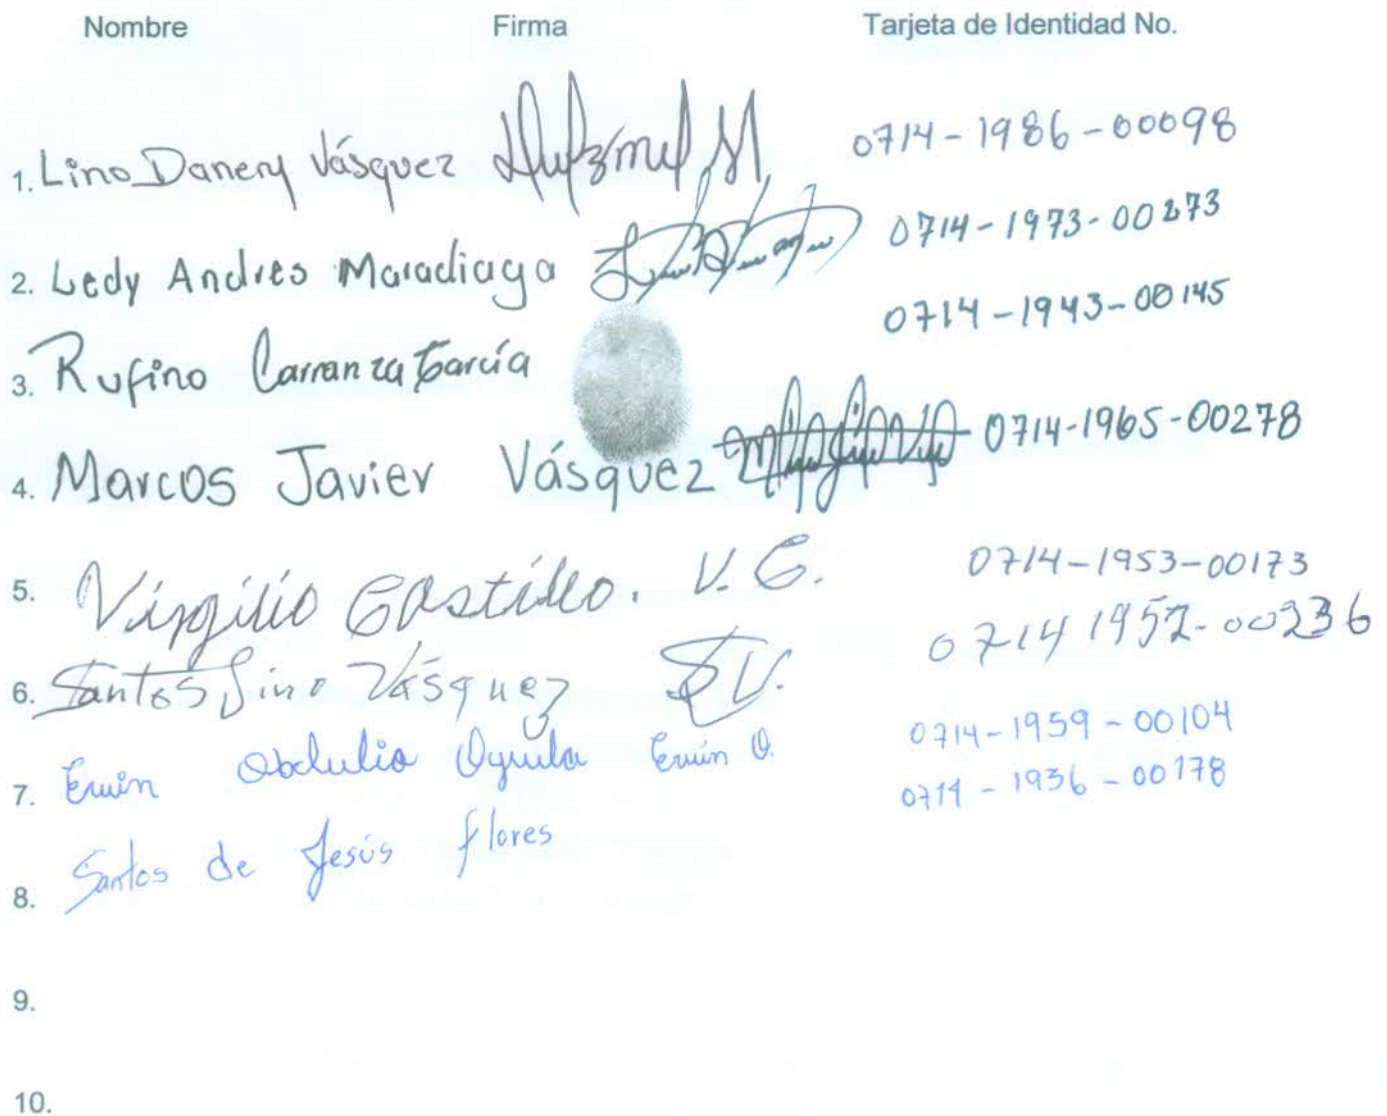 Nombre Firma Tarjeta de Identidad No.
1. Lino Danery Vásquez 0714-1986-00098
2. Ledy Andres Maradiaga 0714-1973-00273
3. Rufino Carranza García 0714-1943-00145
4. Marcos Javier Vásquez 0714-1965-00278
5. Virgilio Castillo. V.C. 0714-1953-00173
6. Santos Lino Vásquez S.V. 0714 1952-00236
7. Erwin Obdulio Erwin O. 0714-1959-00104
8. Santos de Jesús flores 0714-1936-00178
9.
10.